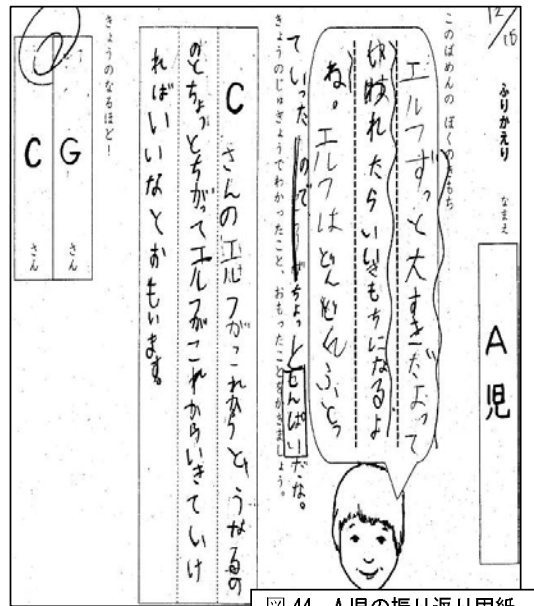 12/16
ふりかえり
なまえ
A児
このばめんの ぼくのきもち
エルフずっと大すきだよって
れたらいいきもちになるよ
ね。エルフはどんどんふとっ
ていった ので ちょっとしんぱいだな。
きょうのじゅぎょうでわかったこと、おもったことをかきましょう。
C さんのエルフがこれからどうなるの
のとちょっとちがってエルフがこれからいきていけ
ればいいなとおもいます。
きょうのなるほど!
G さん
C さん
図 44 A児の振り返り用紙